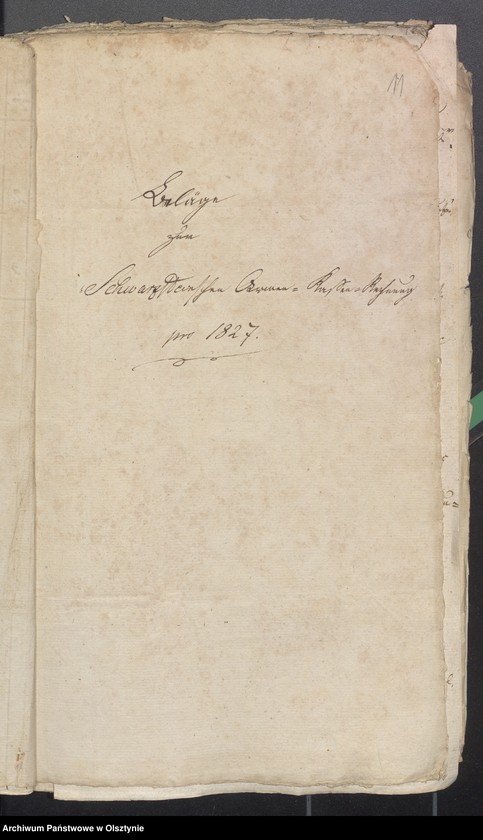 11
Beläge
zur
Schwarzsteinschen Armen-Kassen-Rechnung
pro 1827.
Archiwum Państwowe w Olsztynie